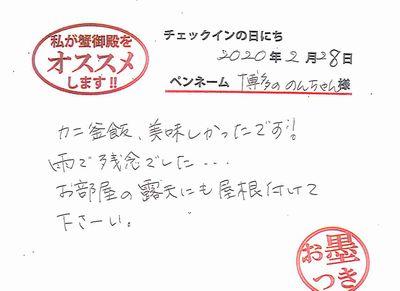 私が蟹御殿を
オススメ
します!!
チェックインの日にち
2020年2月28日
ペンネーム 博多ののんちゃん様
カニ釜飯、美味しかったです!
雨で残念でした・・・
お部屋の露天にも屋根付けて
下さーい。
お墨
つき